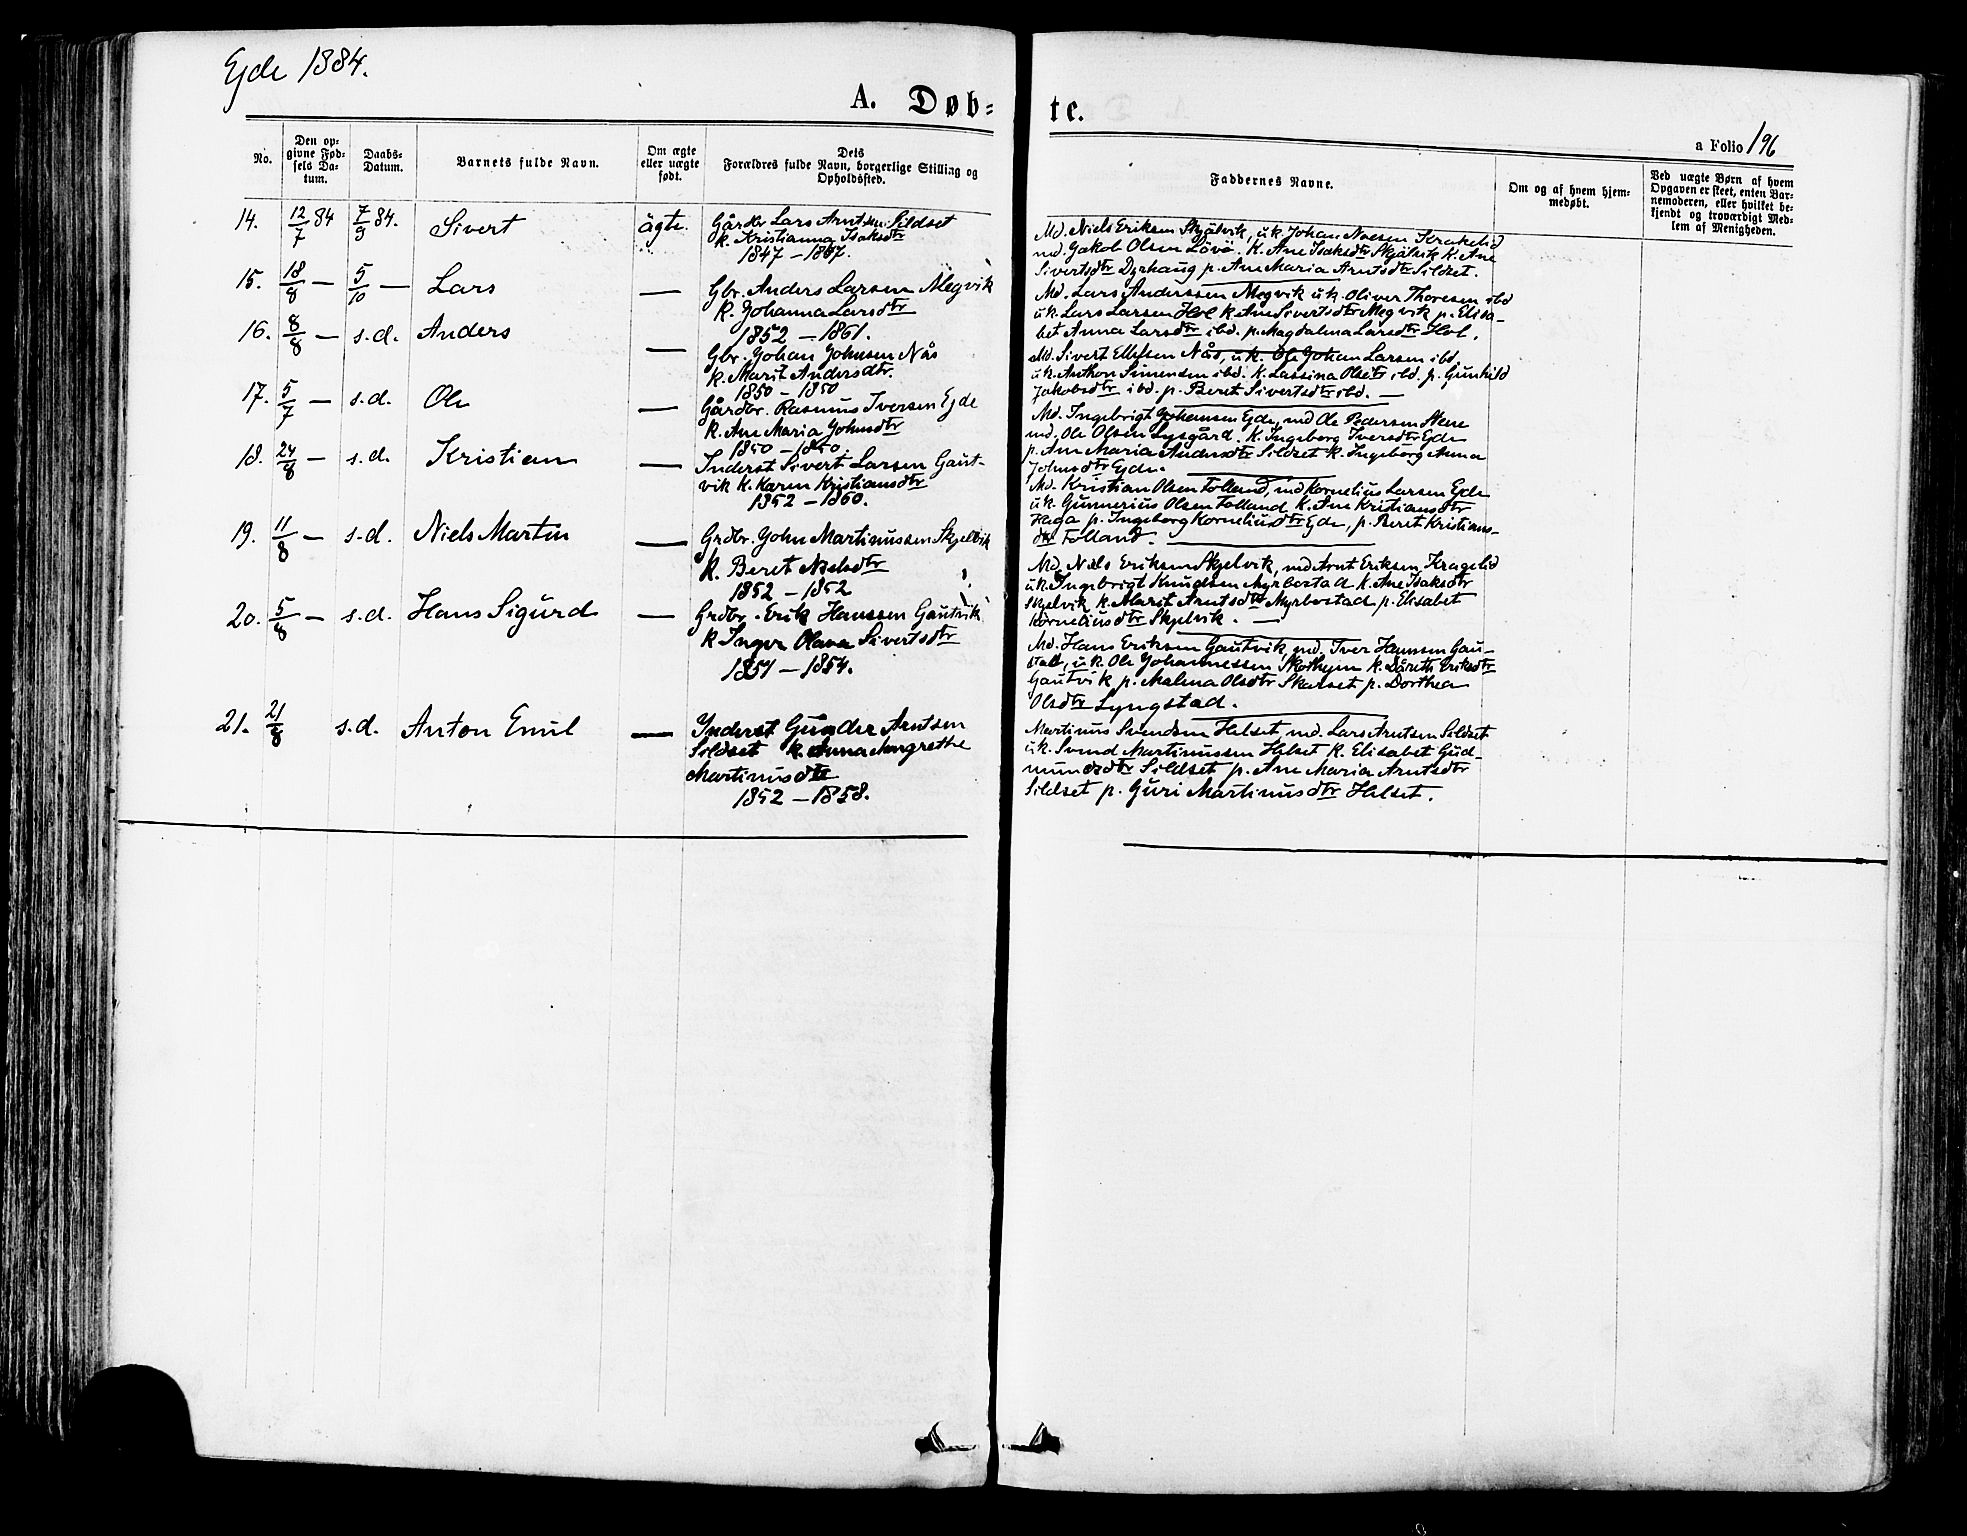 Ejde 1884.
A. Døb-
te.
a Folio 196
No.
Den op-
givne Fød-
sels Da-
tum.
Daabs-
Datum.
Barnets fulde Navn.
Om ægte
eller uægte
født.
Dets
Forældres fulde Navn, borgerlige Stilling og
Opholdssted.
Faddernes Navne.
Om og af hvem hjem-
medøbt.
Ved uægte Børn af hvem
Opgaven er skeet, enten Bar-
nemoderen, eller hvilket be-
kjendt og troværdigt Med-
lem af Menigheden.
14. 12/7 84 7/9 84. Sivert ägte.
Gårdbr. Lars Arntsen Sildset
k. Kristianna Isaksdtr
1847 – 1867.
Md. Niels Eriksen Skjälvik, u.k. Johan Krakelid
md. Jakob Olsen Lövö. K. Ane Isaksdtr Skjälvik K. Ane
Sivertsdtr Dyrhaug p. Ane Maria Arntsdtr Sildset.
15. 18/8 — 5/10 — Lars —
Gbr. Anders Larsen Megvik
K. Johanna Larsdtr
1852 – 1861.
Md. Lars Anderssen Megvik u.k. Oliver Thoresen ibd
u.k. Lars Larsen Hol k. Ane Sivertsdtr Megvik p. Elisa-
bet Anna Larsdtr ibd. p. Magdalena Larsdtr Hol.
16. 8/8 — s.d. Anders —
Gbr. Johan Johnsen Nås
k. Marit Andersdtr.
1850 – 1850
Md. Sivert Ellefsen Nås, u.k. Ole Johan Larsen ibd.
u.k. Anthon Simensen ibd. K. Lassina Olsdtr ibd. p. Gunhild
Jakobsdtr ibd. p. Beret Sivertsdtr ibd. —
17. 5/7 — s.d. Ole —
Gårdbr. Rasmus Iversen Ejde
k. Ane Maria Johnsdtr
1850 – 1850.
Md. Ingebrigt Johansen Ejde, md Ole Pedersen
md. Ole Olsen Lysgård. K. Ingeborg Iversdtr Ejde
p. Ane Maria Andersdtr Sildset k. Ingeborg Anna
Johnsdtr Ejde.
18. 24/8 — s.d. Kristian —
Inderst Sivert Larsen Gaut-
vik K. Karen Kristiansdtr
1852 – 1860.
Md. Kristian Olsen Folland, md Kornelius Larsen Ejde
u.k. Gunnerius Olsen Folland K. Ane Kristiansdtr
Haga p. Ingeborg Korneliusdtr Ejde, p. Beret Kristians-
dtr Folland.
19. 11/8 — s.d. Niels Martin —
Grdbr. John Martinussen Skjelvik
k. Beret Nielsdtr
1852 – 1852
Md. Niels Eriksen Skjelvik, md Arnt Eriksen Kragelid
u.k. Ingebrigt Knudsen Myrbostad K. Ane Isaksdtr
Skjelvik k. Marit Arntsdtr Myrbostad p. Elisabet
Korneliusdtr Skjelvik. —
20. 5/8 — s.d. Hans Sigurd —
Grdbr. Erik Hanssen Gautvik
k Inger Olava Sivertsdtr
1854 – 1854.
Md. Hans Eriksen Gautvik, md. Iver Hannsen Gau-
stad, u.k. Ole Johannessen Skothejm k. Däreth Eriksdtr
Gautvik p. Malena Olsdtr Skarset p. Dorthea
Olsdtr Lyngstad.
21. 21/8 s.d. Anton Emil —
Inderst Gunder Arntsen
Sildset k. Anna Margrethe
Martinusdtr
1852 – 1858.
Martinus Svendsen Helset, md. Lars Arntsen Sildset
u.k. Svend Martinussen Helset K. Elisabet Gud-
mundsdtr Sildset p. Ane Maria Arntsdtr
Sildset p. Guri Martinusdtr Helset.